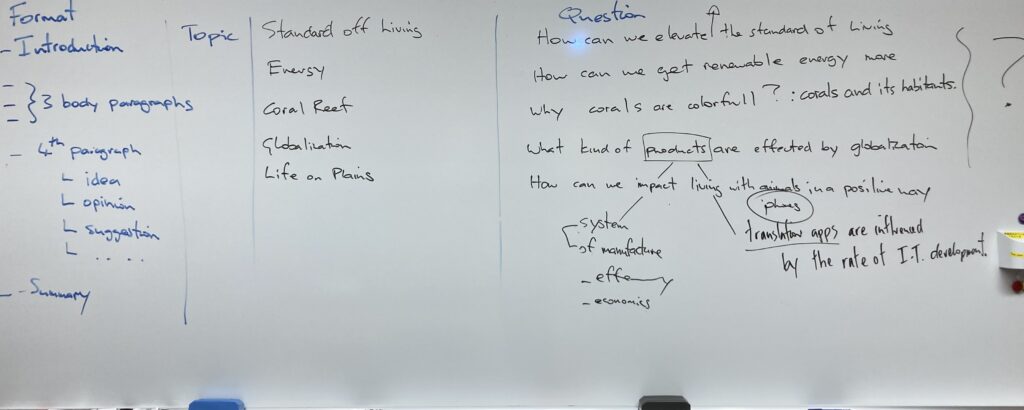 Format
- Introduction
3 body paragraphs
- 4th paragraph
idea
opinion
suggestion
....
- Summary
Topic
Standard off Living
Energy
Coral Reef
Globalization
Life on Plains
Question
How can we elevate the standard of living
How can we get renewable energy more
Why corals are colorfull? : corals and its habitants.
What kind of products are effected by globalzation
How can we impact living with animals in a positive way
system
of manufacture
-
- economics
translation apps are influenced
by the rate of I.T. development.
?